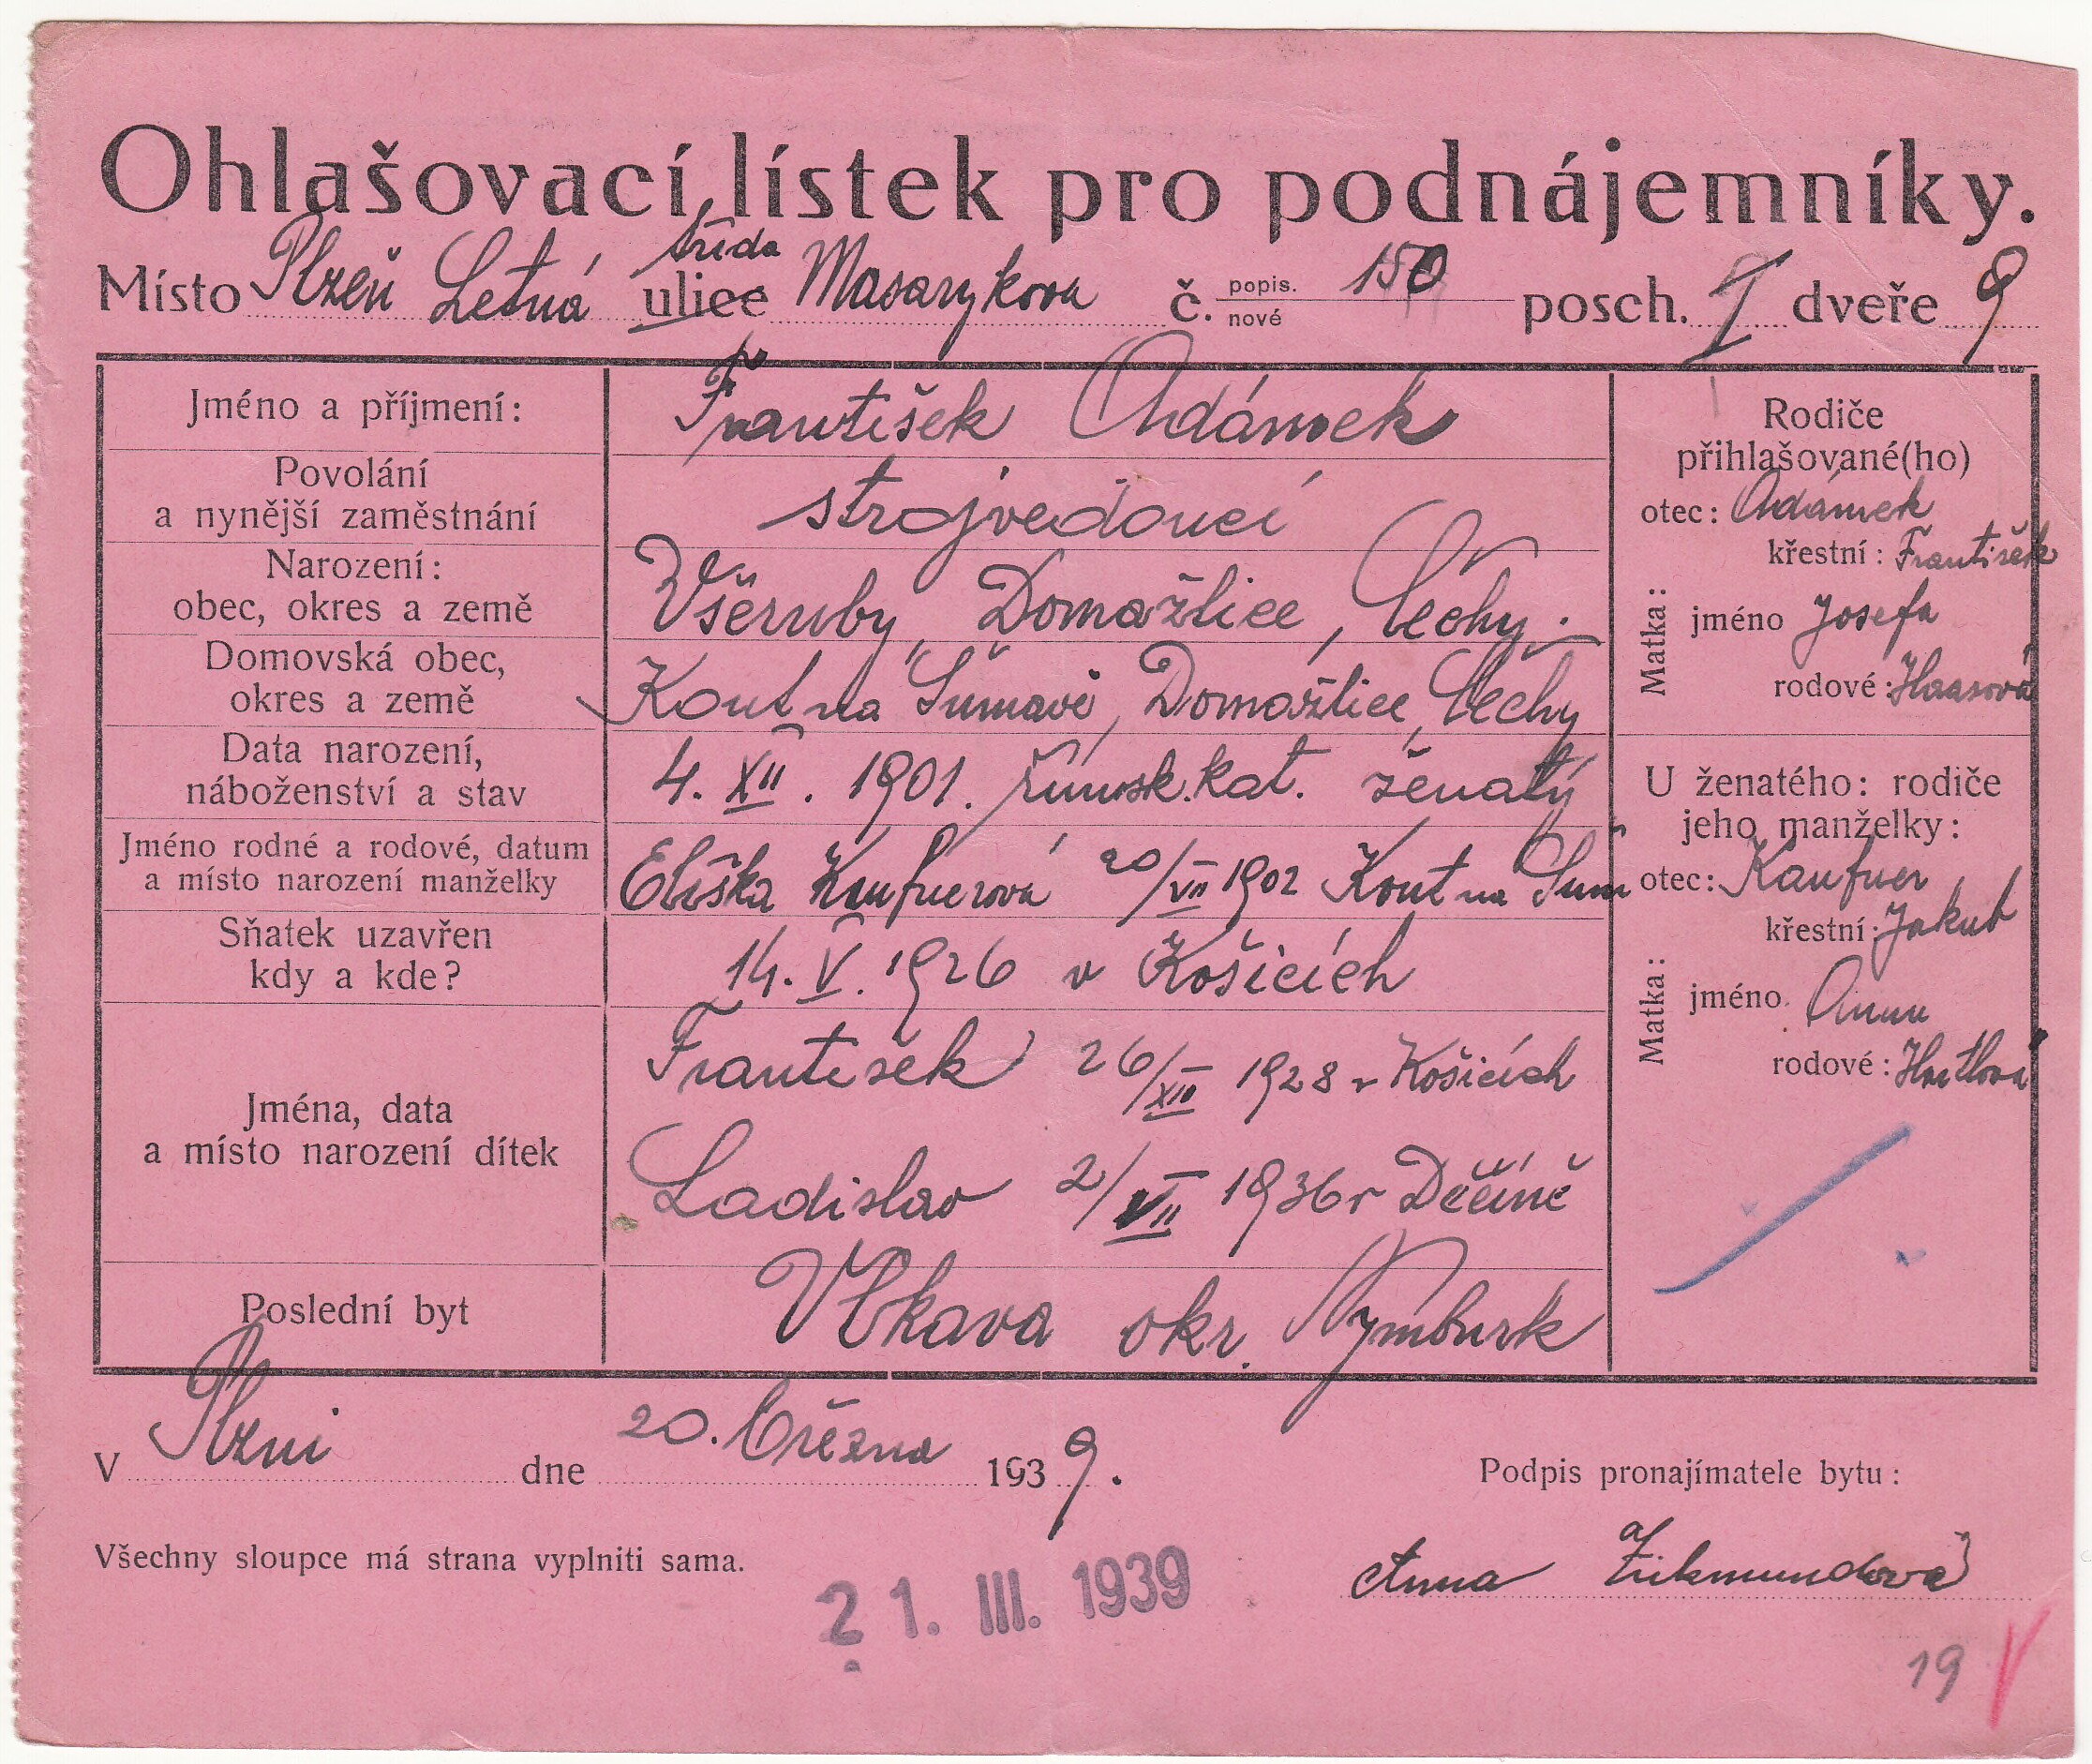 Ohlašovací lístek pro podnájemníky.
třída
Místo Plzeň Letná ulice Masarykova č. popis. nové 150 posch. I dveře 9
Jméno a příjmení: František Adámek
Povolání
a nynější zaměstnání
strojvedoucí
Narození:
obec, okres a země
Všeruby, Domažlice, Čechy.
Domovská obec,
okres a země
Kout na Šumavě, Domažlice, Čechy
Data narození,
náboženství a stav
4. XII. 1901. římsk. kat. ženatý
Jméno rodné a rodové, datum
a místo narození manželky
Eliška Kaufnerová 20/VII 1902 Kout na Šum
Sňatek uzavřen
kdy a kde?
14. V. 1926 v Košicích
Jména, data
a místo narození dítek
František 26/XII 1928 v Košicích
Ladislav 2/VII 1936 v Děčíně
Poslední byt
Vlkava okr. Nymburk
Rodiče
přihlašované(ho)
otec: Adámek
křestní: František
Matka:
jméno Josefa
rodové: Haasová
U ženatého: rodiče
jeho manželky:
otec: Kaufner
křestní: Jakub
Matka:
jméno Anna
rodové:
V Plzni dne 20. března 1939.
Podpis pronajímatele bytu:
Všechny sloupce má strana vyplniti sama.
Anna Zikmundová
21. III. 1939
19